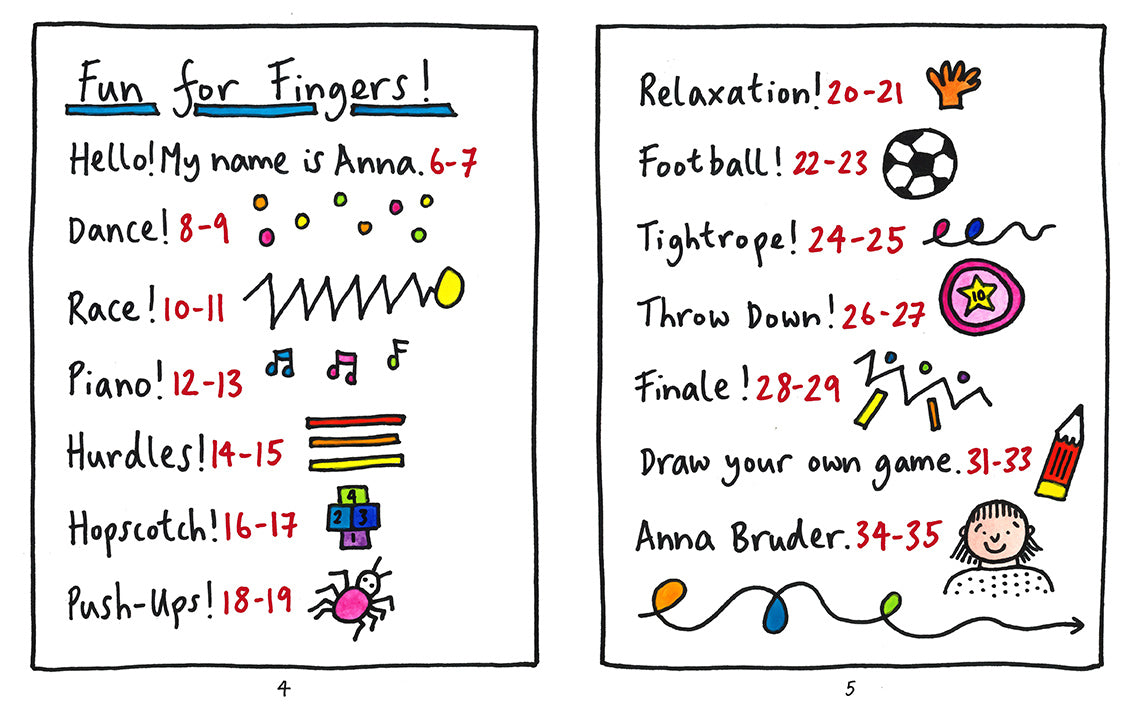 Fun for Fingers!
Hello! My name is Anna. 6-7
Dance! 8-9
Race! 10-11
Piano! 12-13
Hurdles! 14-15
Hopscotch! 16-17
4
2 3
1
Push-Ups! 18-19
4
Relaxation! 20-21
Football! 22-23
Tightrope! 24-25
Throw Down! 26-27
10
Finale! 28-29
Draw your own game. 31-33
Anna Bruder. 34-35
5